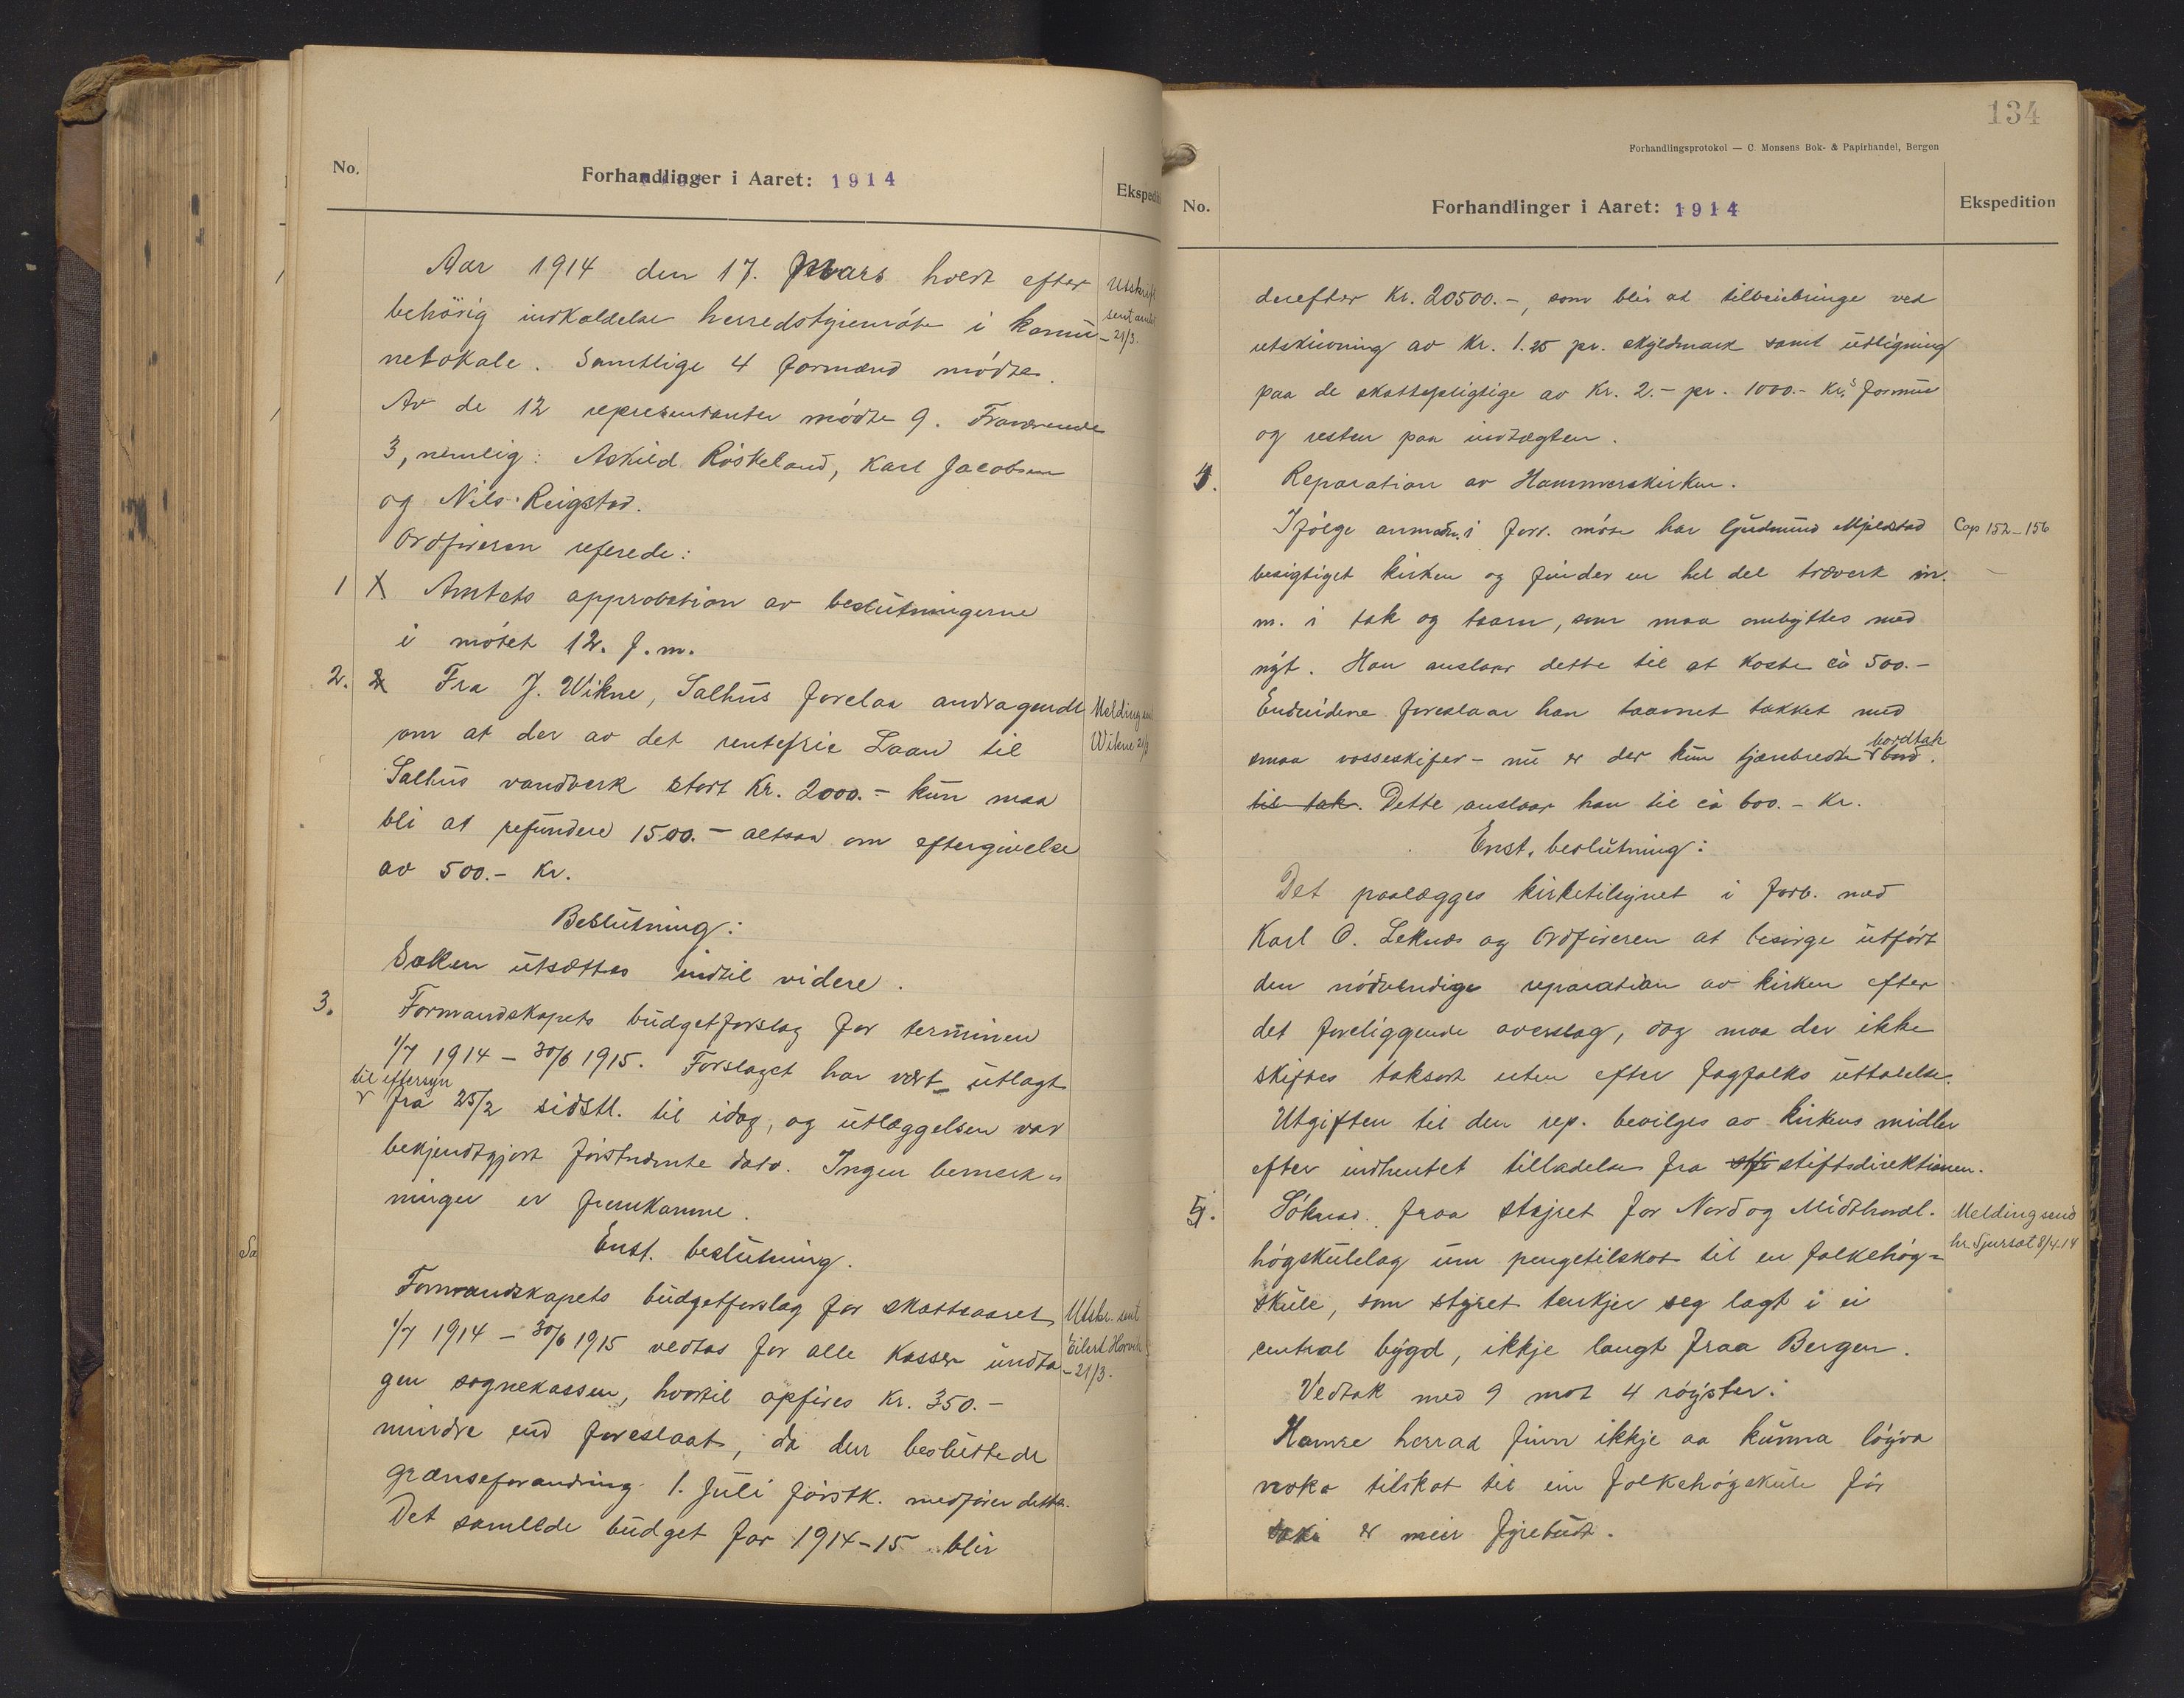 No.
Forhandlinger i Aaret: 1914
Aar 1914 den 17. Mars holdt efter
behörig indkaldelse herredstyremöte i komu-
nelokale. Samtlige 4 formænd mödte.
Av de 12 representanter mödte 9. Fraværende
3, nemlig: Askild Röskeland, Karl Jacobsen
og Nils Reigstad.
Ordföreren referede:
Utskrift
sent amtet
21/3.
1 Amtets approbation av beslutningerne
i mötet 12. f. m.
2. Fra J. Wikne, Salhus forelaa andragende
om at der av det rentefrie Laan til
Salhus vandverk stort Kr. 2000.- kun maa
bli at refundere 1500.- altsaa om eftergivelse
av 500.- Kr.
Melding sent
Wikne 21/3
Beslutning:
Saken utsættes indtil videre.
3. Formandskapets budgetforslag for terminen
1/7 1914 - 30/6 1915. Forslaget har vært utlagt
til eftersyn
fra 25/2 sidstl. til idag, og utlæggelsen var
bekjendtgjort förstnævnte dato. Ingen bemerk-
ninger er fremkomne.
Enst. beslutning.
Formandskapets budgetforslag for skatteaaret
1/7 1914 - 30/6 1915 vedtas for alle kasser undta-
gen sognekassen, hvortil opföres Kr. 350.-
mindre end foreslaat, da den besluttede
grænseforandring 1. Juli förstk. medförer dette.
Det samlede budget for 1914-15 blir
Utskr. sent
Eilert
21/3.
134
Forhandlingsprotokol — C. Monsens Bok- & Papirhandel, Bergen
No.
Forhandlinger i Aaret: 1914
Ekspedition
derefter Kr. 20500.-, som blir at tilveiebringe ved
utskrivning av Kr. 1.25 pr. skyldmark samt utligning
paa de skattepligtige av Kr. 2.- pr. 1000.- Kr.s formue
og resten paa indtægten.
4. Reparation av Hammerskirken.
Ifölge anmodn. i forr. möte har Gudmund Mjelstad
besigtiget kirken og finder en hel del træverk m.
m. i tak og taarn, som maa ombyttes med
nyt. Han anslaar dette til at koste ca 500.-
Endvidere foreslaar han taarnet tækket med
smaa vosseskifer - nu er der kun tjærebredte bord.
bordtak
til tak. Dette anslaar han til ca 600.- Kr.
Cop 152-156
Enst. beslutning:
Det paalægges kirketilsynet i forb. med
Karl O. Leknes og Ordföreren at besörge utfört
den nödvendige reparation av kirken efter
det foreliggende overslag, dog maa der ikke
skiftes taksort uten efter fagfolks uttalelse.
Utgiften til den rep. bevilges av kirkens midler
efter indhentet tilladelse fra stiftsdirektionen.
5. Söknad fraa styret for Nord og Midthordl.
högskulelag um pengetilskot til en folkehög-
skule, som styret tenkjer seg lagt i ei
central bygd, ikkje langt fraa Bergen.
Melding send
hr. Sjursæt 8/4.14
Vedtak med 9 mot 4 röyster:
Hamre herrad finn ikkje aa kunna löyva
noko tilskot til ein folkehögskule för
saki er meir fyrebudt.